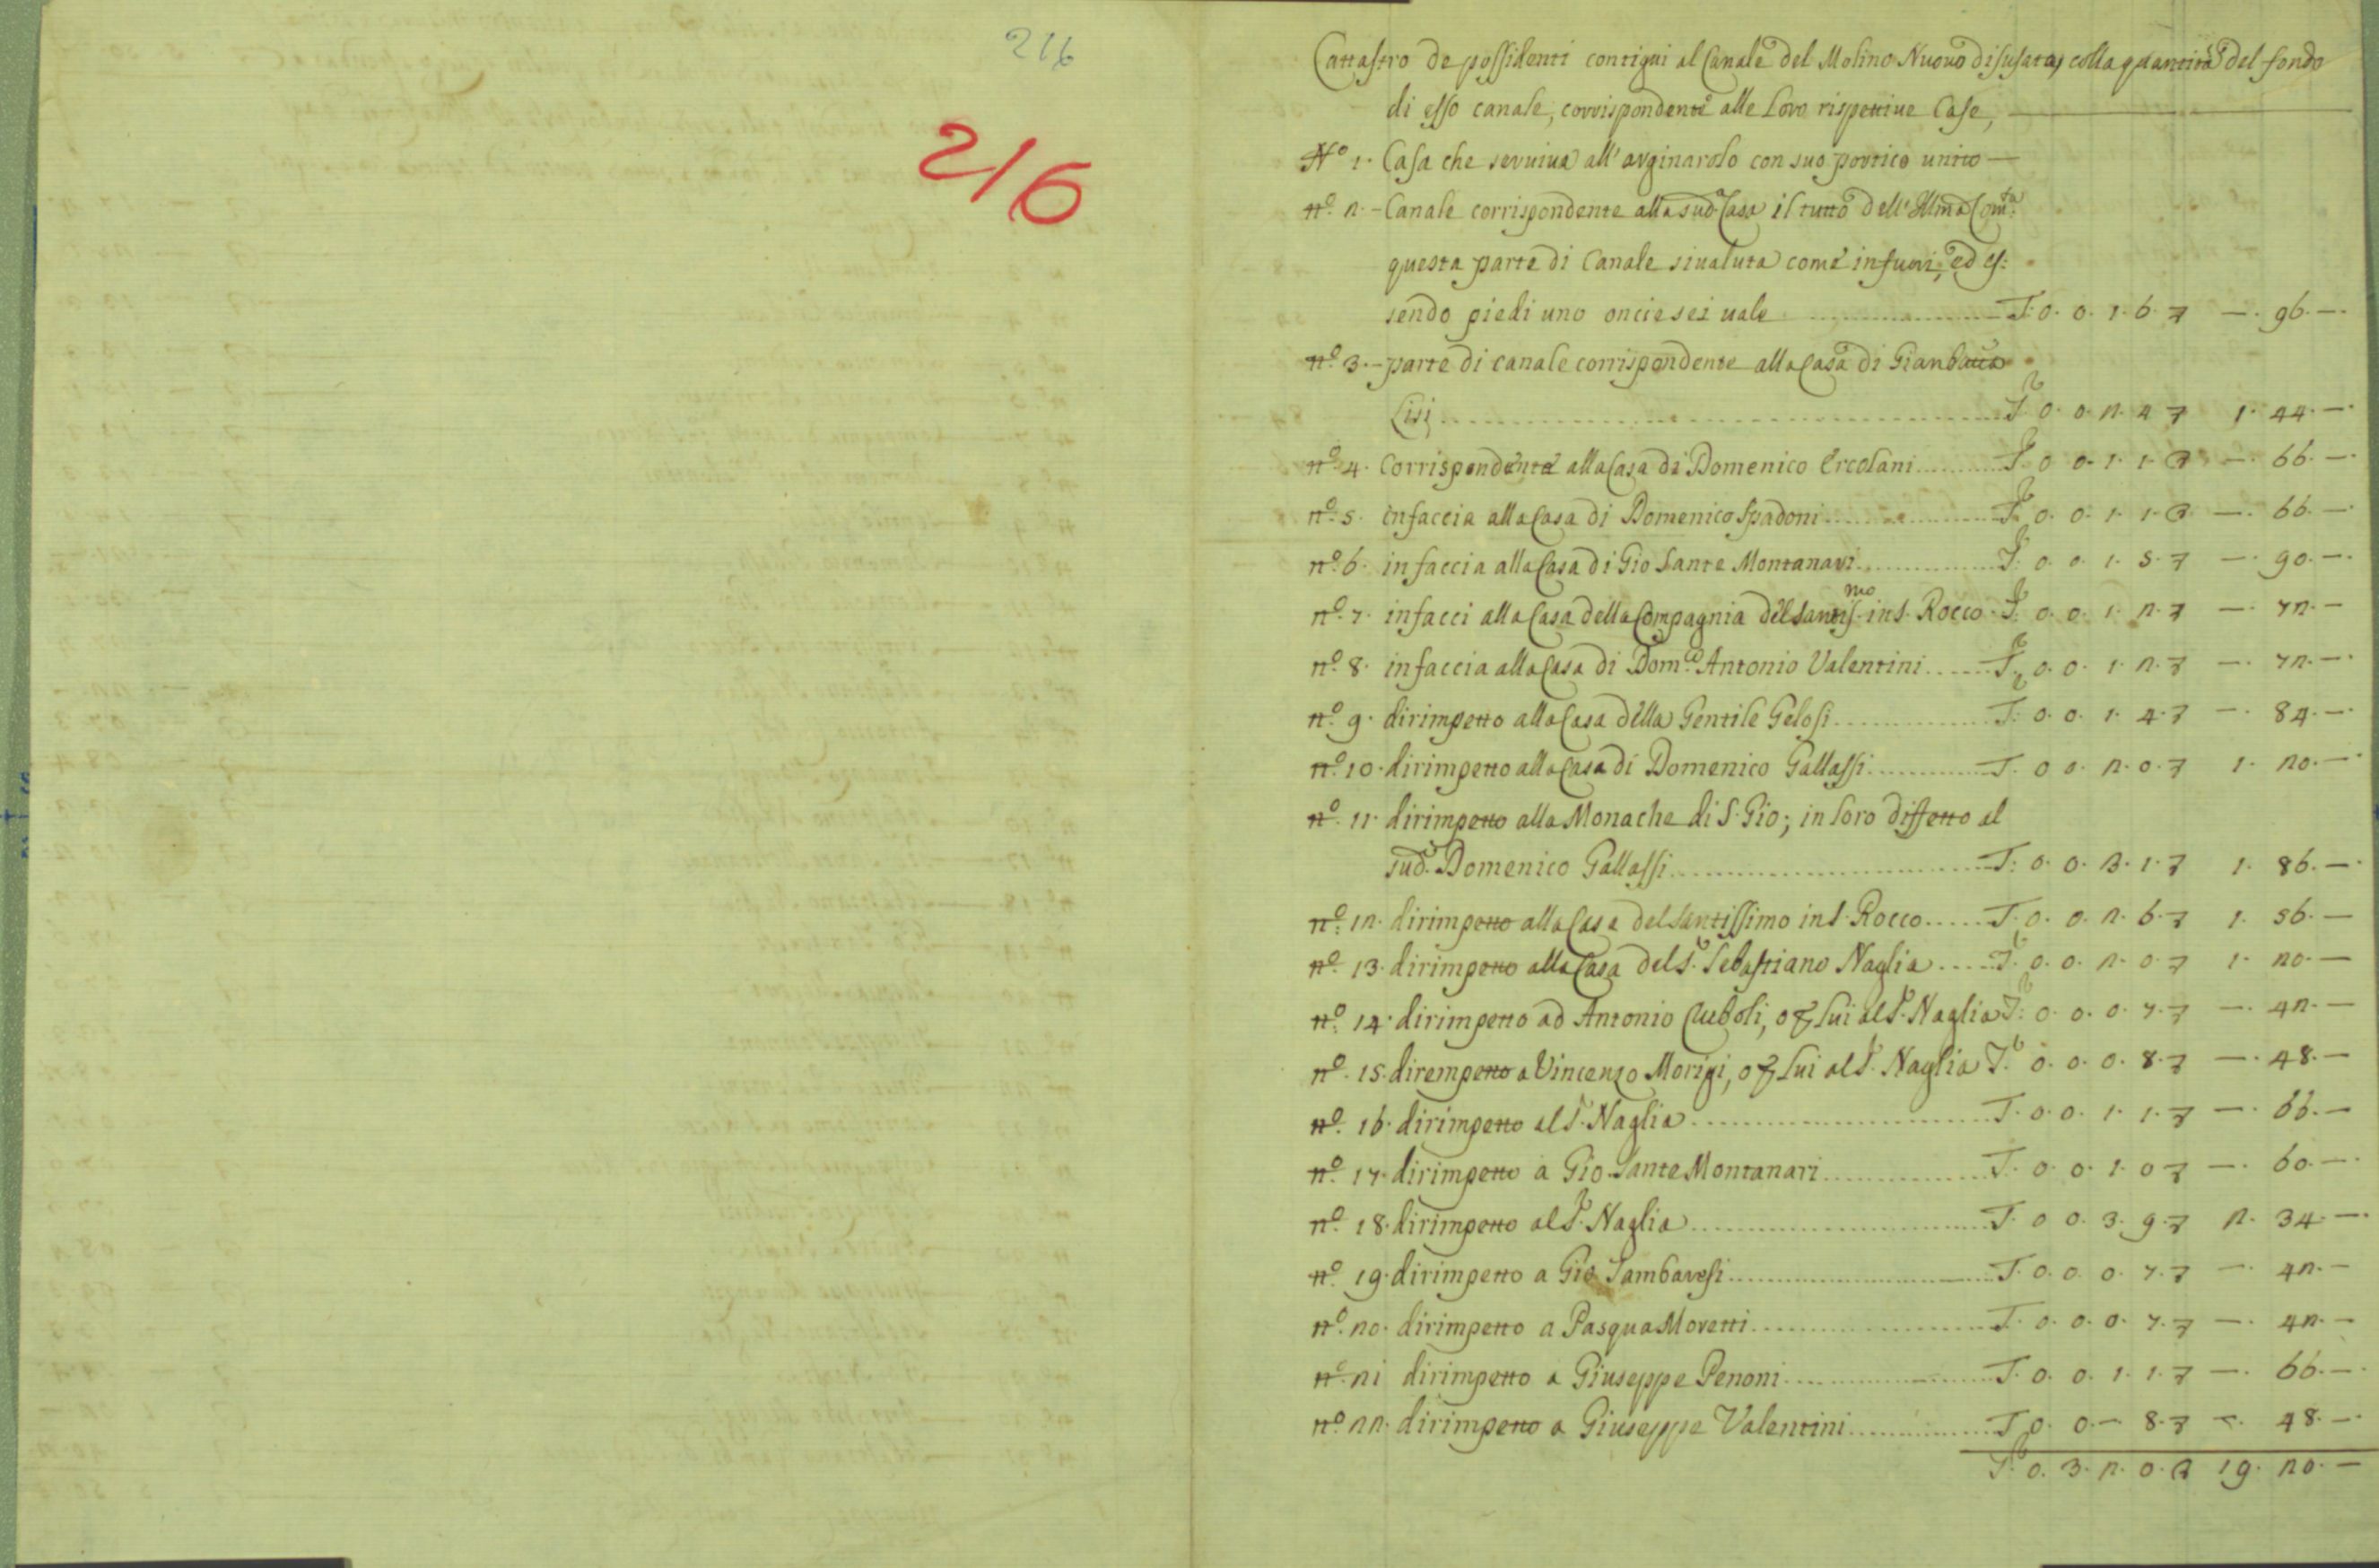 216
216
Cattastro de possidenti contigui al Canale del Molino Nuovo disusata, colla quantità del fondo
di esso canale, corrispondente alle Loro rispettive Case,
No 1. Casa che serviva all' arginarolo con suo portico unito —
no. 2. - Canale corrispondente alla sudª Casa il tutto dell' Illma Comtà:
questa parte di Canale si valuta come infuori, ed es:
sendo piedi uno oncie sei vale ........ T: 0. 0. 1. 6. 7 —. 96. —.
no. 3. - parte di canale corrispondente alla Casa di Gianbatta
Lisi ........ T. 0. 0. 2. 4. 7 1. 44. —.
no. 4. Corrispondente alla Casa di Domenico Ercolani ........ T. 0. 0. 1. 1. 7 —. 66. —.
no. 5. infaccia alla Casa di Domenico Spadoni ........ T. 0. 0. 1. 1. 7 —. 66. —.
no. 6. in faccia alla Casa di Gio Sante Montanari ........ T. 0. 0. 1. 5. 7 —. 90. —.
no. 7. infacci alla Casa della Compagnia del Santismo in S. Rocco. T. 0. 0. 1. 2. 7 —. 72. —
no. 8. infaccia alla Casa di Dom.co Antonio Valentini ........ T. 0. 0. 1. 2. 7 —. 72. —.
no. 9. dirimpetto alla Casa della Gentile Gelosi ........ T. 0. 0. 1. 4. 7 —. 84. —.
no. 10. dirimpetto alla Casa di Domenico Gallassi ........ T. 0 0. 2. 0. 7 1. 20. —.
no. 11. dirimpetto alla Monache di S. Gio; in loro diffetto al
sud.o Domenico Gallassi ........ T: 0. 0. 3. 1. 7 1. 86. —.
no. 12. dirimpetto alla Casa del Santissimo in S. Rocco ........ T. 0. 0. 2. 6. 7 1. 56. —
no. 13. dirimpetto alla Casa del S.r Sebastiano Naglia ........ T. 0. 0. 2. 0. 7 1. 20. —
no. 14. dirimpetto ad Antonio Cluboli, o per lui al S.r Naglia T: 0. 0. 0. 7. 7 —. 42. —
no. 15. dirempetto a Vincenzo Morigi, o per lui al S.r Naglia T. 0. 0. 0. 8. 7 —. 48. —
no. 16. dirimpetto al S.r Naglia ........ T. 0. 0. 1. 1. 7 —. 66. —
no. 17. dirimpetto a Gio. Sante Montanari ........ T. 0. 0. 1. 0 7 —. 60. —.
no. 18. dirimpetto al S.r Naglia ........ T. 0 0. 3. 9. 7 2. 34. —.
no. 19. dirimpetto a Gio Tambaresi ........ T. 0. 0. 0. 7. 7 —. 42. —
no. 20. dirimpetto a Pasqua Moretti ........ T. 0. 0. 0. 7. 7 —. 42. —
no. 21 dirimpetto a Giuseppe Penoni ........ T. 0. 0. 1. 1. 7 —. 66. —.
no. 22. dirimpetto a Giuseppe Valentini ........ T. 0. 0. — 8. 7 —. 48. —.
T. 0. 3. 2. 0. 7 19. 20. —